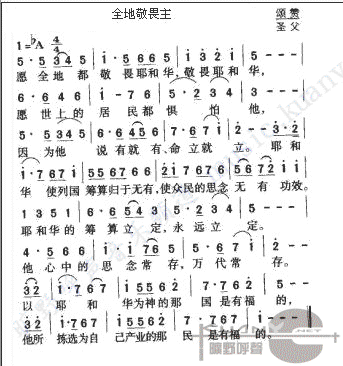 全地敬畏主
颂赞
圣父
1=♭A 4/4
5·5 345 | i·5665 | 5·5 234 | 5 - - - |
愿全地都敬畏耶和华,敬畏耶和华,
6·646 | i - 76 | 5·232 | 5 - - - |
愿世上的居民都惧怕他,
5·5345 | 6·6456 | 7·7671 | 2 - - 3·2 |
因为他说有就有,命立就立。耶和
i·7671 | 5567766 | 2i7676 | 5 5672 i i |
华使列国筹算归于无有,使众民的思念无有功效。
1351 | 6·654 | 5·234 | 5 - - - |
耶和华的筹算立定,永远立定。
4·566 | i·765 | 5·671 | 2 - - - |
他心中的思念常存,万代常存。
32 i·767 | i5562 | i·767 | 5 - - - |
以耶和华为神的那国是有福的,
32 i·767 | i5562 | i·767 | i - - - ‖
他所拣选为自己产业的那民是有福的。
旷野呼声